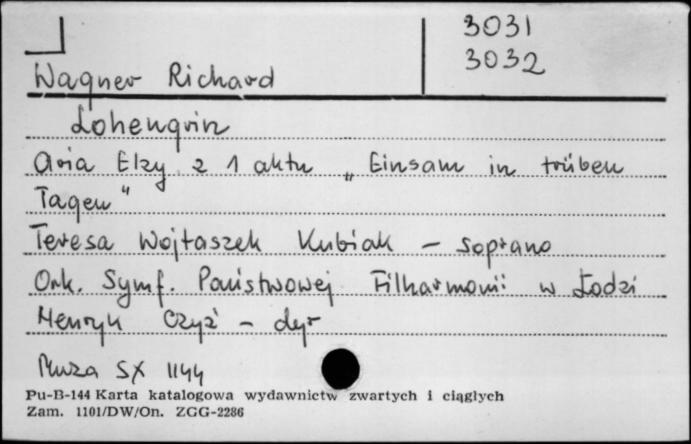 3031
3032
Wagner Richard
Lohengrin
Aria Elzy z 1 aktu „Einsam in trüben
Tagen"
Teresa Wojtaszek Kubiak - soprano
Ork. Symf. Państwowej Filharmonii w Łodzi
Henryk Czyż - dyr
Muza SX 1144
Pu-B-144 Karta katalogowa wydawnictw zwartych i ciągłych
Zam. 1101/DW/On. ZGG-2286